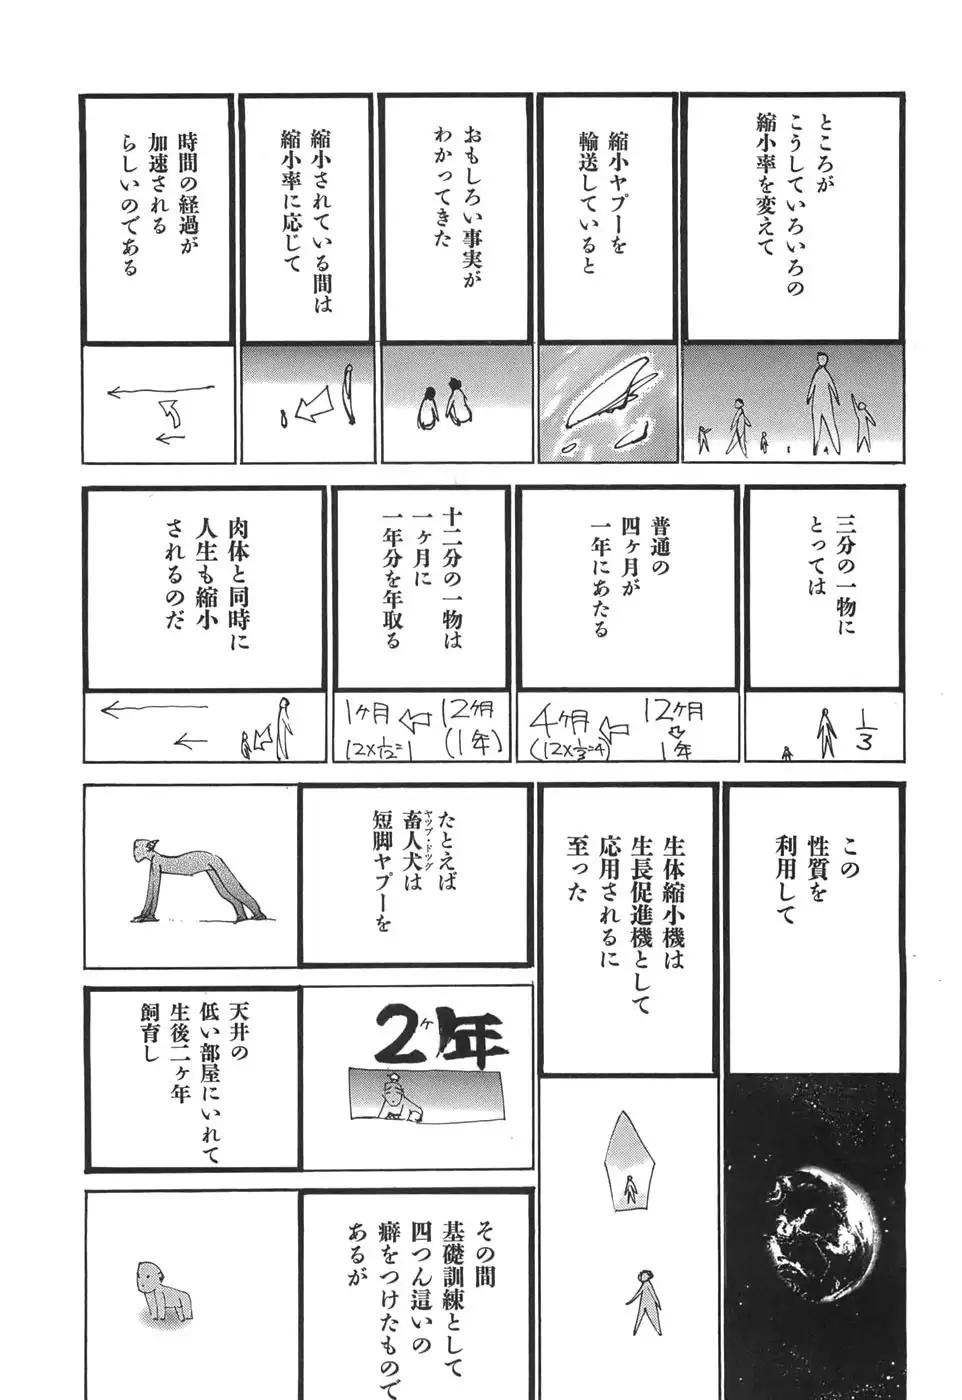 ところが
こうしていろいろの
縮小率を変えて
縮小ヤプーを
輸送していると
おもしろい事実が
わかってきた
縮小されている間は
縮小率に応じて
時間の経過が
加速される
らしいのである
三分の一物に
とっては
1/3
普通の
四ヶ月が
一年にあたる
12ヶ月
1年
4ヶ月
(12×1/3=4)
十二分の一物は
一ヶ月に
一年分を年取る
12ヶ月
(1年)
1ヶ月
12×1/12=1
肉体と同時に
人生も縮小
されるのだ
この
性質を
利用して
生体縮小機は
生長促進機として
応用されるに
至った
たとえば
畜人犬は
ヤップ・ドッグ
短脚ヤプーを
2ヶ年
天井の
低い部屋にいれて
生後二ヶ年
飼育し
その間
基礎訓練として
四つん這いの
癖をつけたもので
あるが